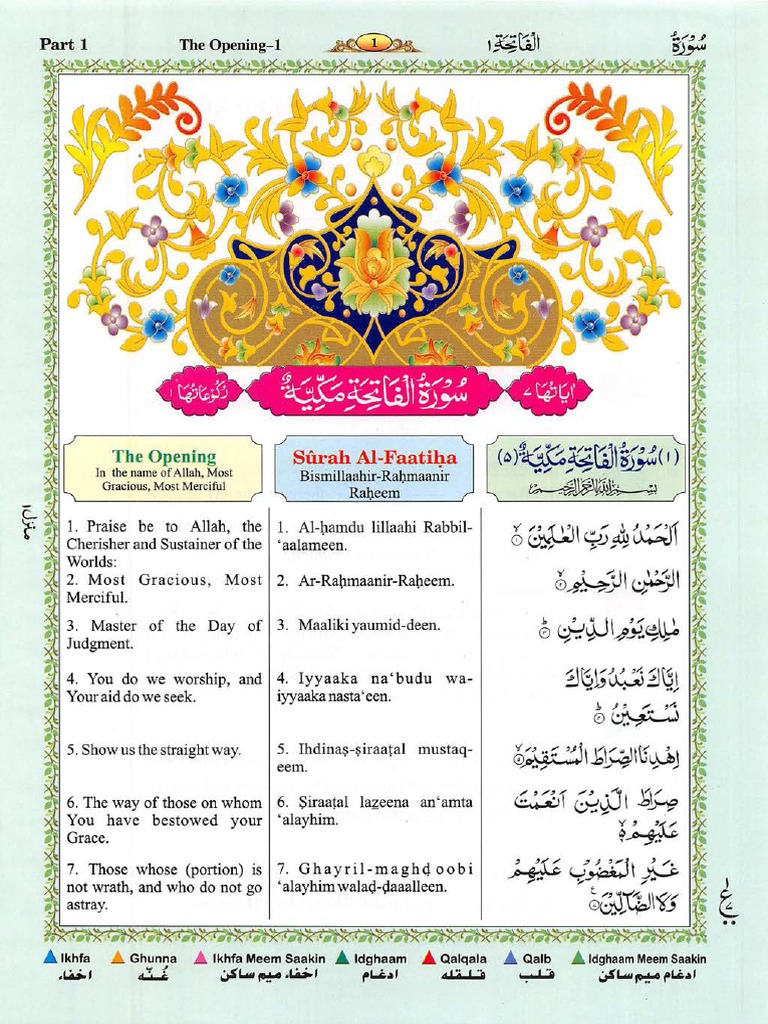 Part 1
The Opening–1
1
الْفَاتِحَة ١
سُوْرَةٌ
رُكُوْعَاتُهَا ١
سُوْرَةُ الْفَاتِحَةِ مَكِّيَّةٌ
اٰيَاتُهَا ٧
The Opening
In the name of Allah, Most
Gracious, Most Merciful
1. Praise be to Allah, the
Cherisher and Sustainer of the
Worlds:
2. Most Gracious, Most
Merciful.
3. Master of the Day of
Judgment.
4. You do we worship, and
Your aid do we seek.
5. Show us the straight way.
6. The way of those on whom
You have bestowed your
Grace.
7. Those whose (portion) is
not wrath, and who do not go
astray.
Sûrah Al-Faatiḥa
Bismillaahir-Raḥmaanir
Raḥeem
1. Al-ḥamdu lillaahi Rabbil-
‘aalameen.
2. Ar-Raḥmaanir-Raḥeem.
3. Maaliki yaumid-deen.
4. Iyyaaka na‘budu wa-
iyyaaka nasta‘een.
5. Ihdinaṣ-ṣiraaṭal mustaq-
eem.
6. Ṣiraaṭal lazeena an‘amta
‘alayhim.
7. Ghayril-maghḍoobi
‘alayhim walaḍ-ḍaaalleen.
(١) سُوْرَةُ الْفَاتِحَةِ مَكِّيَّةٌ (٥)
بِسْمِ اللّٰهِ الرَّحْمٰنِ الرَّحِيْمِ
اَلْحَمْدُ لِلّٰهِ رَبِّ الْعٰلَمِيْنَ ۙ‏ ١
الرَّحْمٰنِ الرَّحِيْمِ ۙ‏ ٢
مٰلِكِ يَوْمِ الدِّيْنِ ؕ‏ ٣
اِيَّاكَ نَعْبُدُ وَاِيَّاكَ
نَسْتَعِيْنُ ؕ‏ ٤
اِهْدِنَا الصِّرَاطَ الْمُسْتَقِيْمَ ۙ‏ ٥
صِرَاطَ الَّذِيْنَ اَنْعَمْتَ
عَلَيْهِمْ ۙ‏ ٦
غَيْرِ الْمَغْضُوْبِ عَلَيْهِمْ
وَلَا الضَّآلِّيْنَ ٧
منزل ١
١
ع
٧
Ikhfa
Ghunna
Ikhfa Meem Saakin
Idghaam
Qalqala
Qalb
Idghaam Meem Saakin
اخفاء
غُنّه
اخفاء ميم ساكن
ادغام
قلقله
قلب
ادغام ميم ساكن